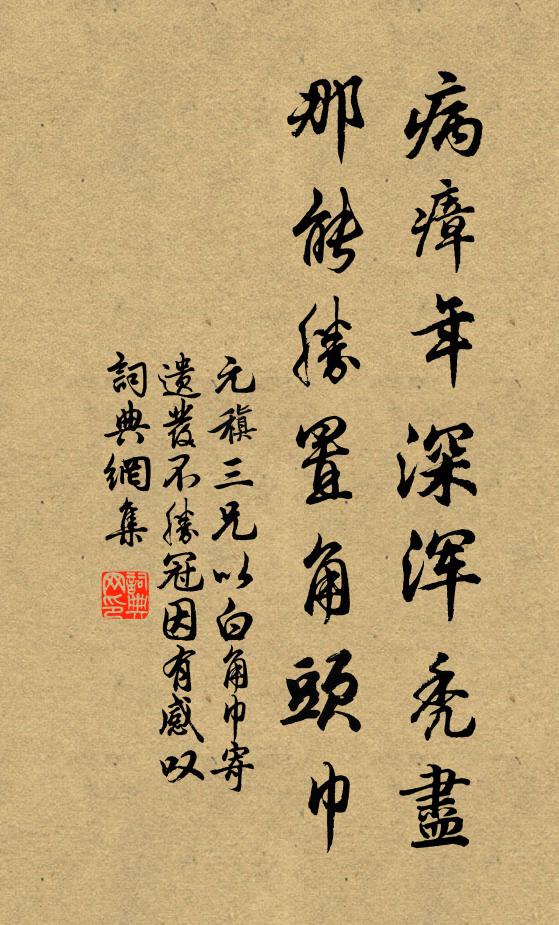 病瘴年深浑秃盡
那能勝置角頭巾
元稹三兄以白角巾寄
遗發不勝冠因有感叹
詞典網集
詞典网印